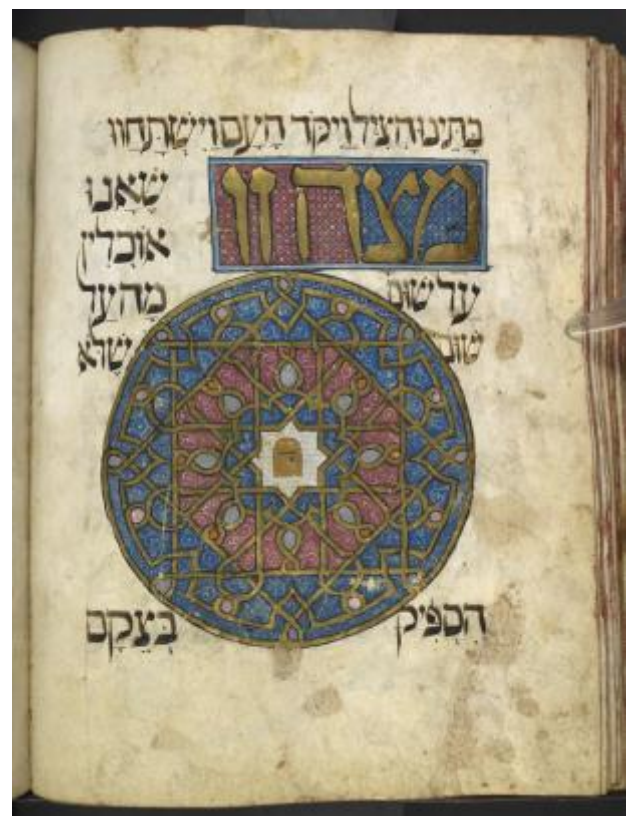 בָּתֵּינוּ הִצִּיל וַיִּקֹּד הָעָם וַיִּשְׁתַּחֲווּ
מצה זו
שֶׁאָנוּ
אוֹכְלִין
עַל שׁוּם מַה עַל
שׁוּם שֶׁלֹּא
הִסְפִּיק בְּצֵקָם